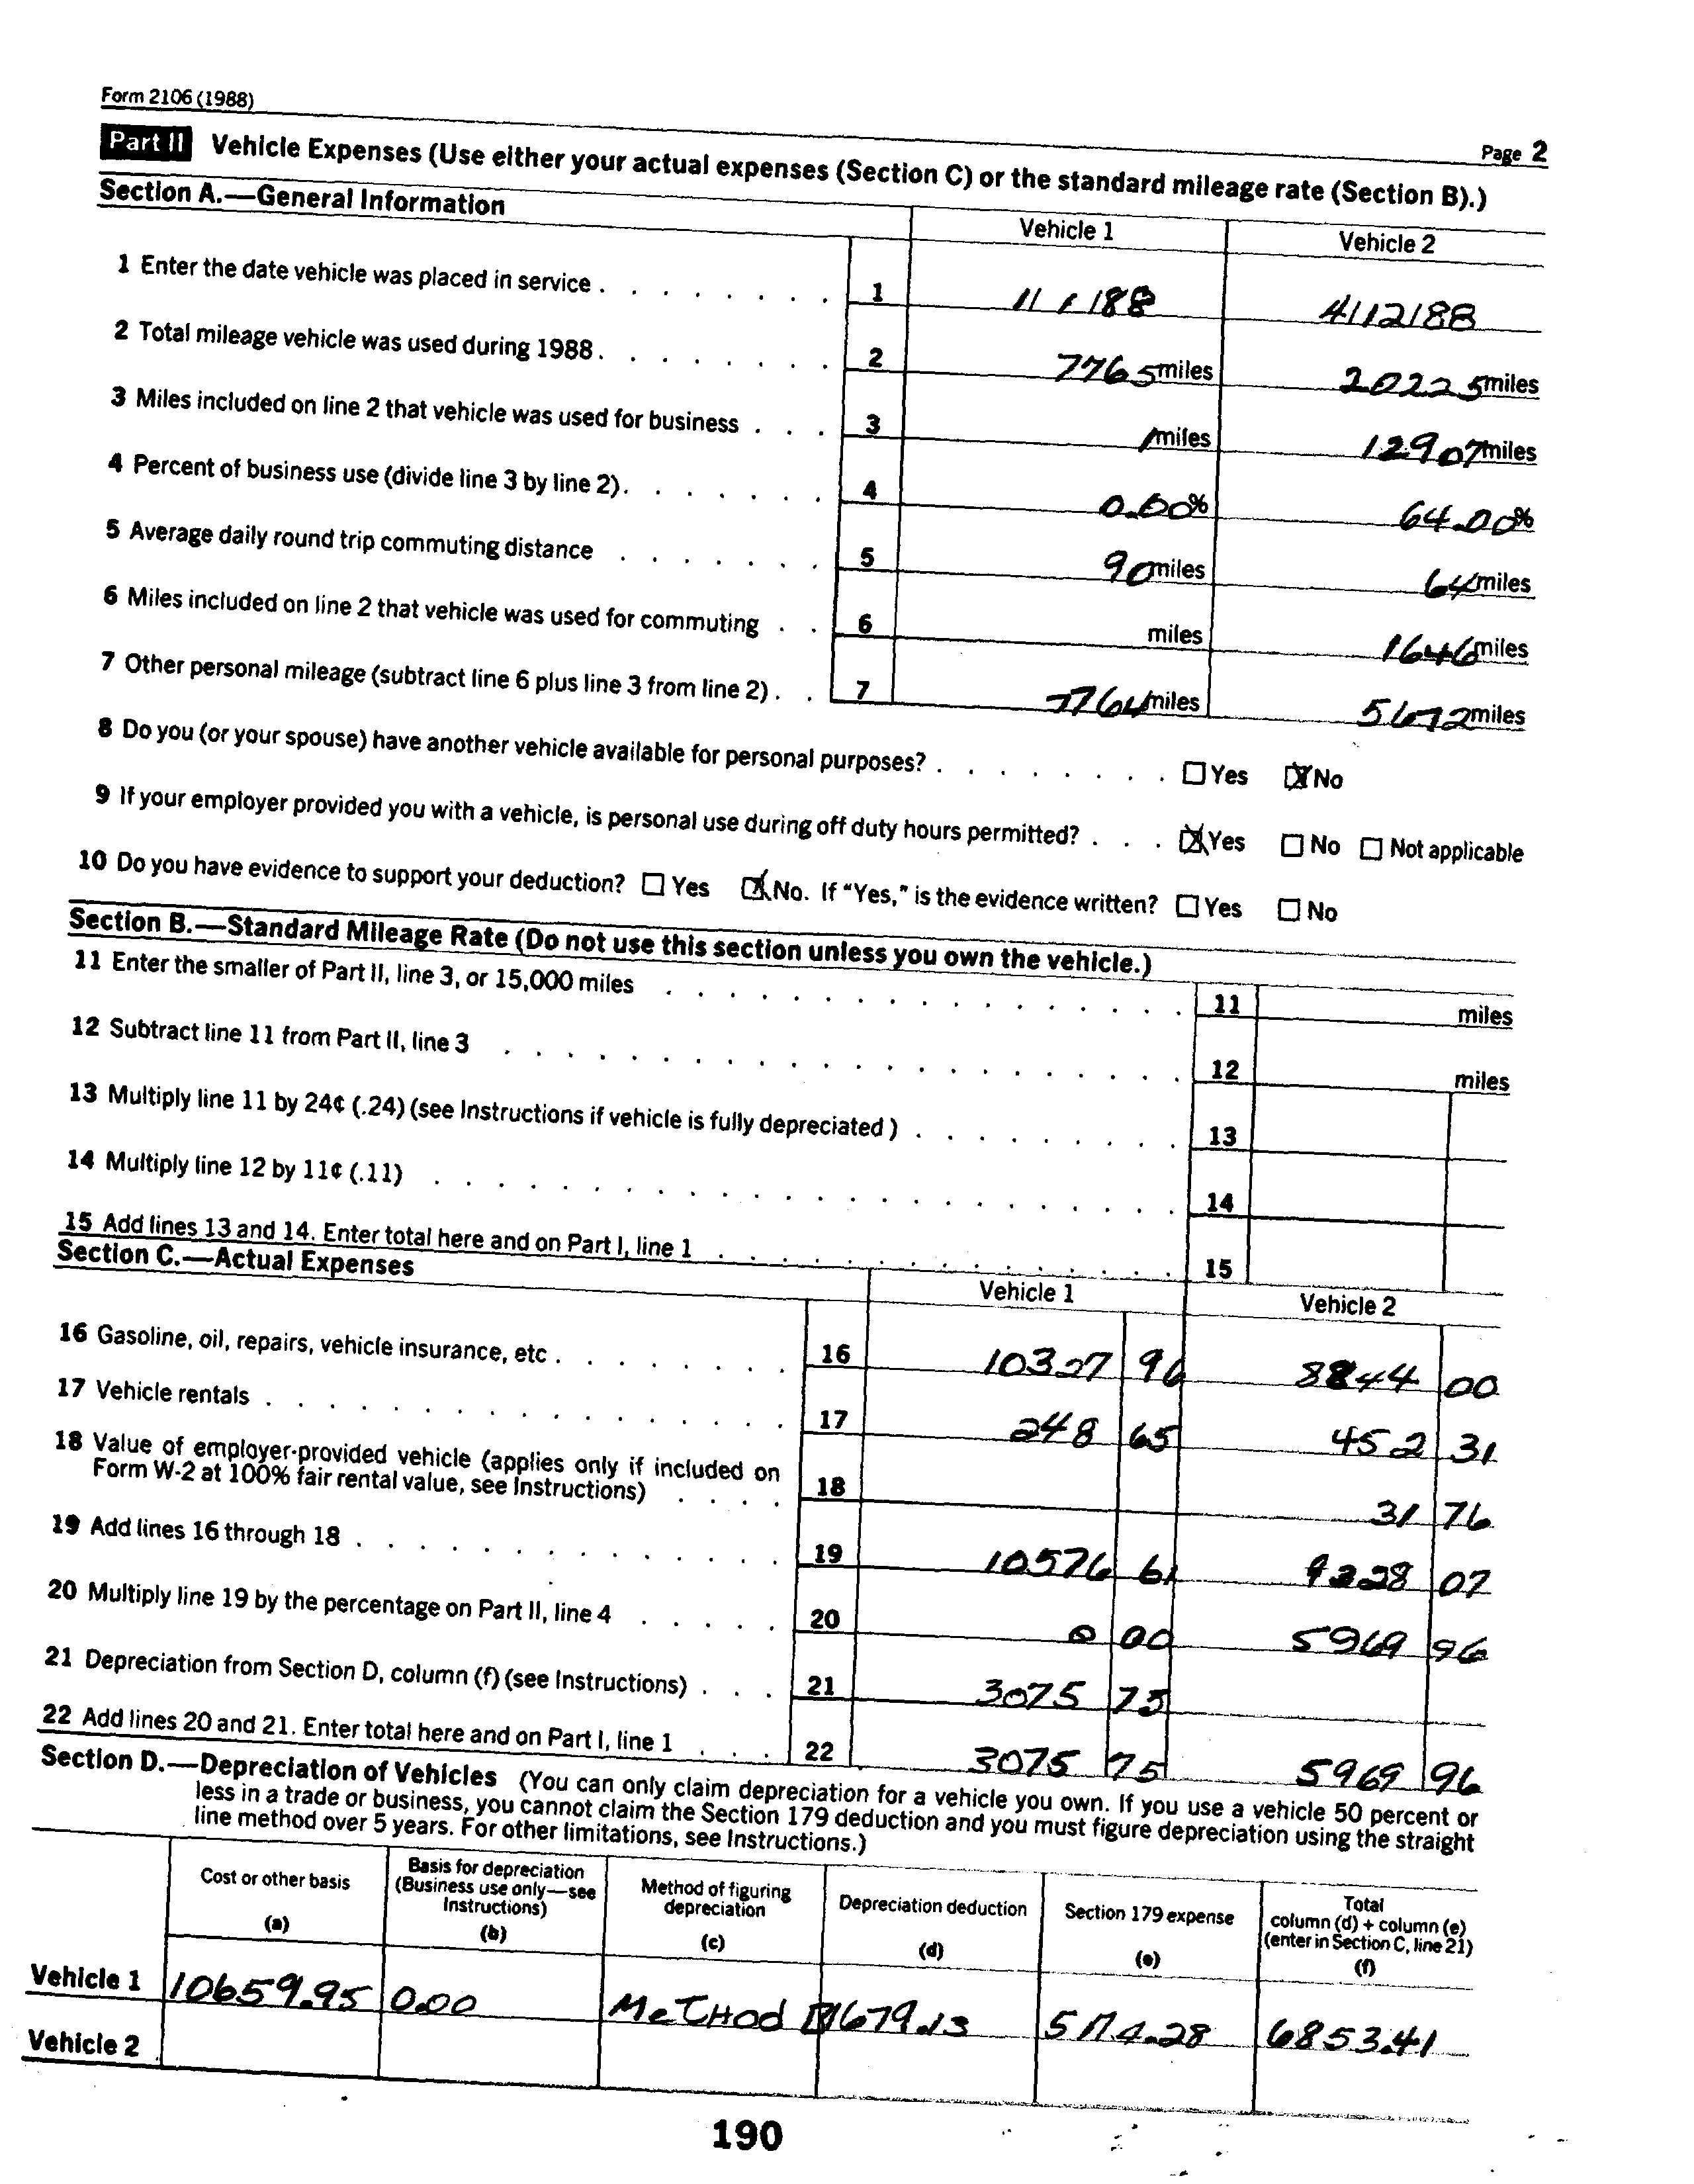 Form 2106 (1988)
Page 2
Part II Vehicle Expenses (Use either your actual expenses (Section C) or the standard mileage rate (Section B).)
Section A.—General Information
Vehicle 1 Vehicle 2
1 Enter the date vehicle was placed in service . . . . . . . . 1 11/1/88 4/12/88
2 Total mileage vehicle was used during 1988 . . . . . . . . 2 7765 miles 20225 miles
3 Miles included on line 2 that vehicle was used for business . . . 3 1 miles 12907 miles
4 Percent of business use (divide line 3 by line 2) . . . . . . . 4 0.00% 64.00%
5 Average daily round trip commuting distance . . . . . . . 5 90 miles 64 miles
6 Miles included on line 2 that vehicle was used for commuting . . 6 miles 1646 miles
7 Other personal mileage (subtract line 6 plus line 3 from line 2) . . 7 7764 miles 5672 miles
8 Do you (or your spouse) have another vehicle available for personal purposes? . . . . . . . . ☐ Yes ☒ No
9 If your employer provided you with a vehicle, is personal use during off duty hours permitted? . . . ☒ Yes ☐ No ☐ Not applicable
10 Do you have evidence to support your deduction? ☐ Yes ☒ No. If “Yes,” is the evidence written? ☐ Yes ☐ No
Section B.—Standard Mileage Rate (Do not use this section unless you own the vehicle.)
11 Enter the smaller of Part II, line 3, or 15,000 miles . . . . . . . . . . . . . . . . . 11 miles
12 Subtract line 11 from Part II, line 3 . . . . . . . . . . . . . . . . . . . . . . 12 miles
13 Multiply line 11 by 24¢ (.24) (see Instructions if vehicle is fully depreciated ) . . . . . . . . . 13
14 Multiply line 12 by 11¢ (.11) . . . . . . . . . . . . . . . . . . . . . . . . 14
15 Add lines 13 and 14. Enter total here and on Part I, line 1 . . . . . . . . . . . . . . . 15
Section C.—Actual Expenses
Vehicle 1 Vehicle 2
16 Gasoline, oil, repairs, vehicle insurance, etc . . . . . . . . 16 10327 96 8844 00
17 Vehicle rentals . . . . . . . . . . . . . . . . . 17 248 65 452 31
18 Value of employer-provided vehicle (applies only if included on
Form W-2 at 100% fair rental value, see Instructions) . . . . 18 31 76
19 Add lines 16 through 18 . . . . . . . . . . . . . . 19 10576 61 9328 07
20 Multiply line 19 by the percentage on Part II, line 4 . . . . . 20 0 00 5969 96
21 Depreciation from Section D, column (f) (see Instructions) . . . 21 3075 75
22 Add lines 20 and 21. Enter total here and on Part I, line 1 . . . 22 3075 75 5969 96
Section D.—Depreciation of Vehicles (You can only claim depreciation for a vehicle you own. If you use a vehicle 50 percent or
less in a trade or business, you cannot claim the Section 179 deduction and you must figure depreciation using the straight
line method over 5 years. For other limitations, see Instructions.)
Cost or other basis
(a)
Basis for depreciation
(Business use only—see
Instructions)
(b)
Method of figuring
depreciation
(c)
Depreciation deduction
(d)
Section 179 expense
(e)
Total
column (d) + column (e)
(enter in Section C, line 21)
(f)
Vehicle 1 10659.95 0.00 METHOD 1679.13 5174.28 6853.41
Vehicle 2
190